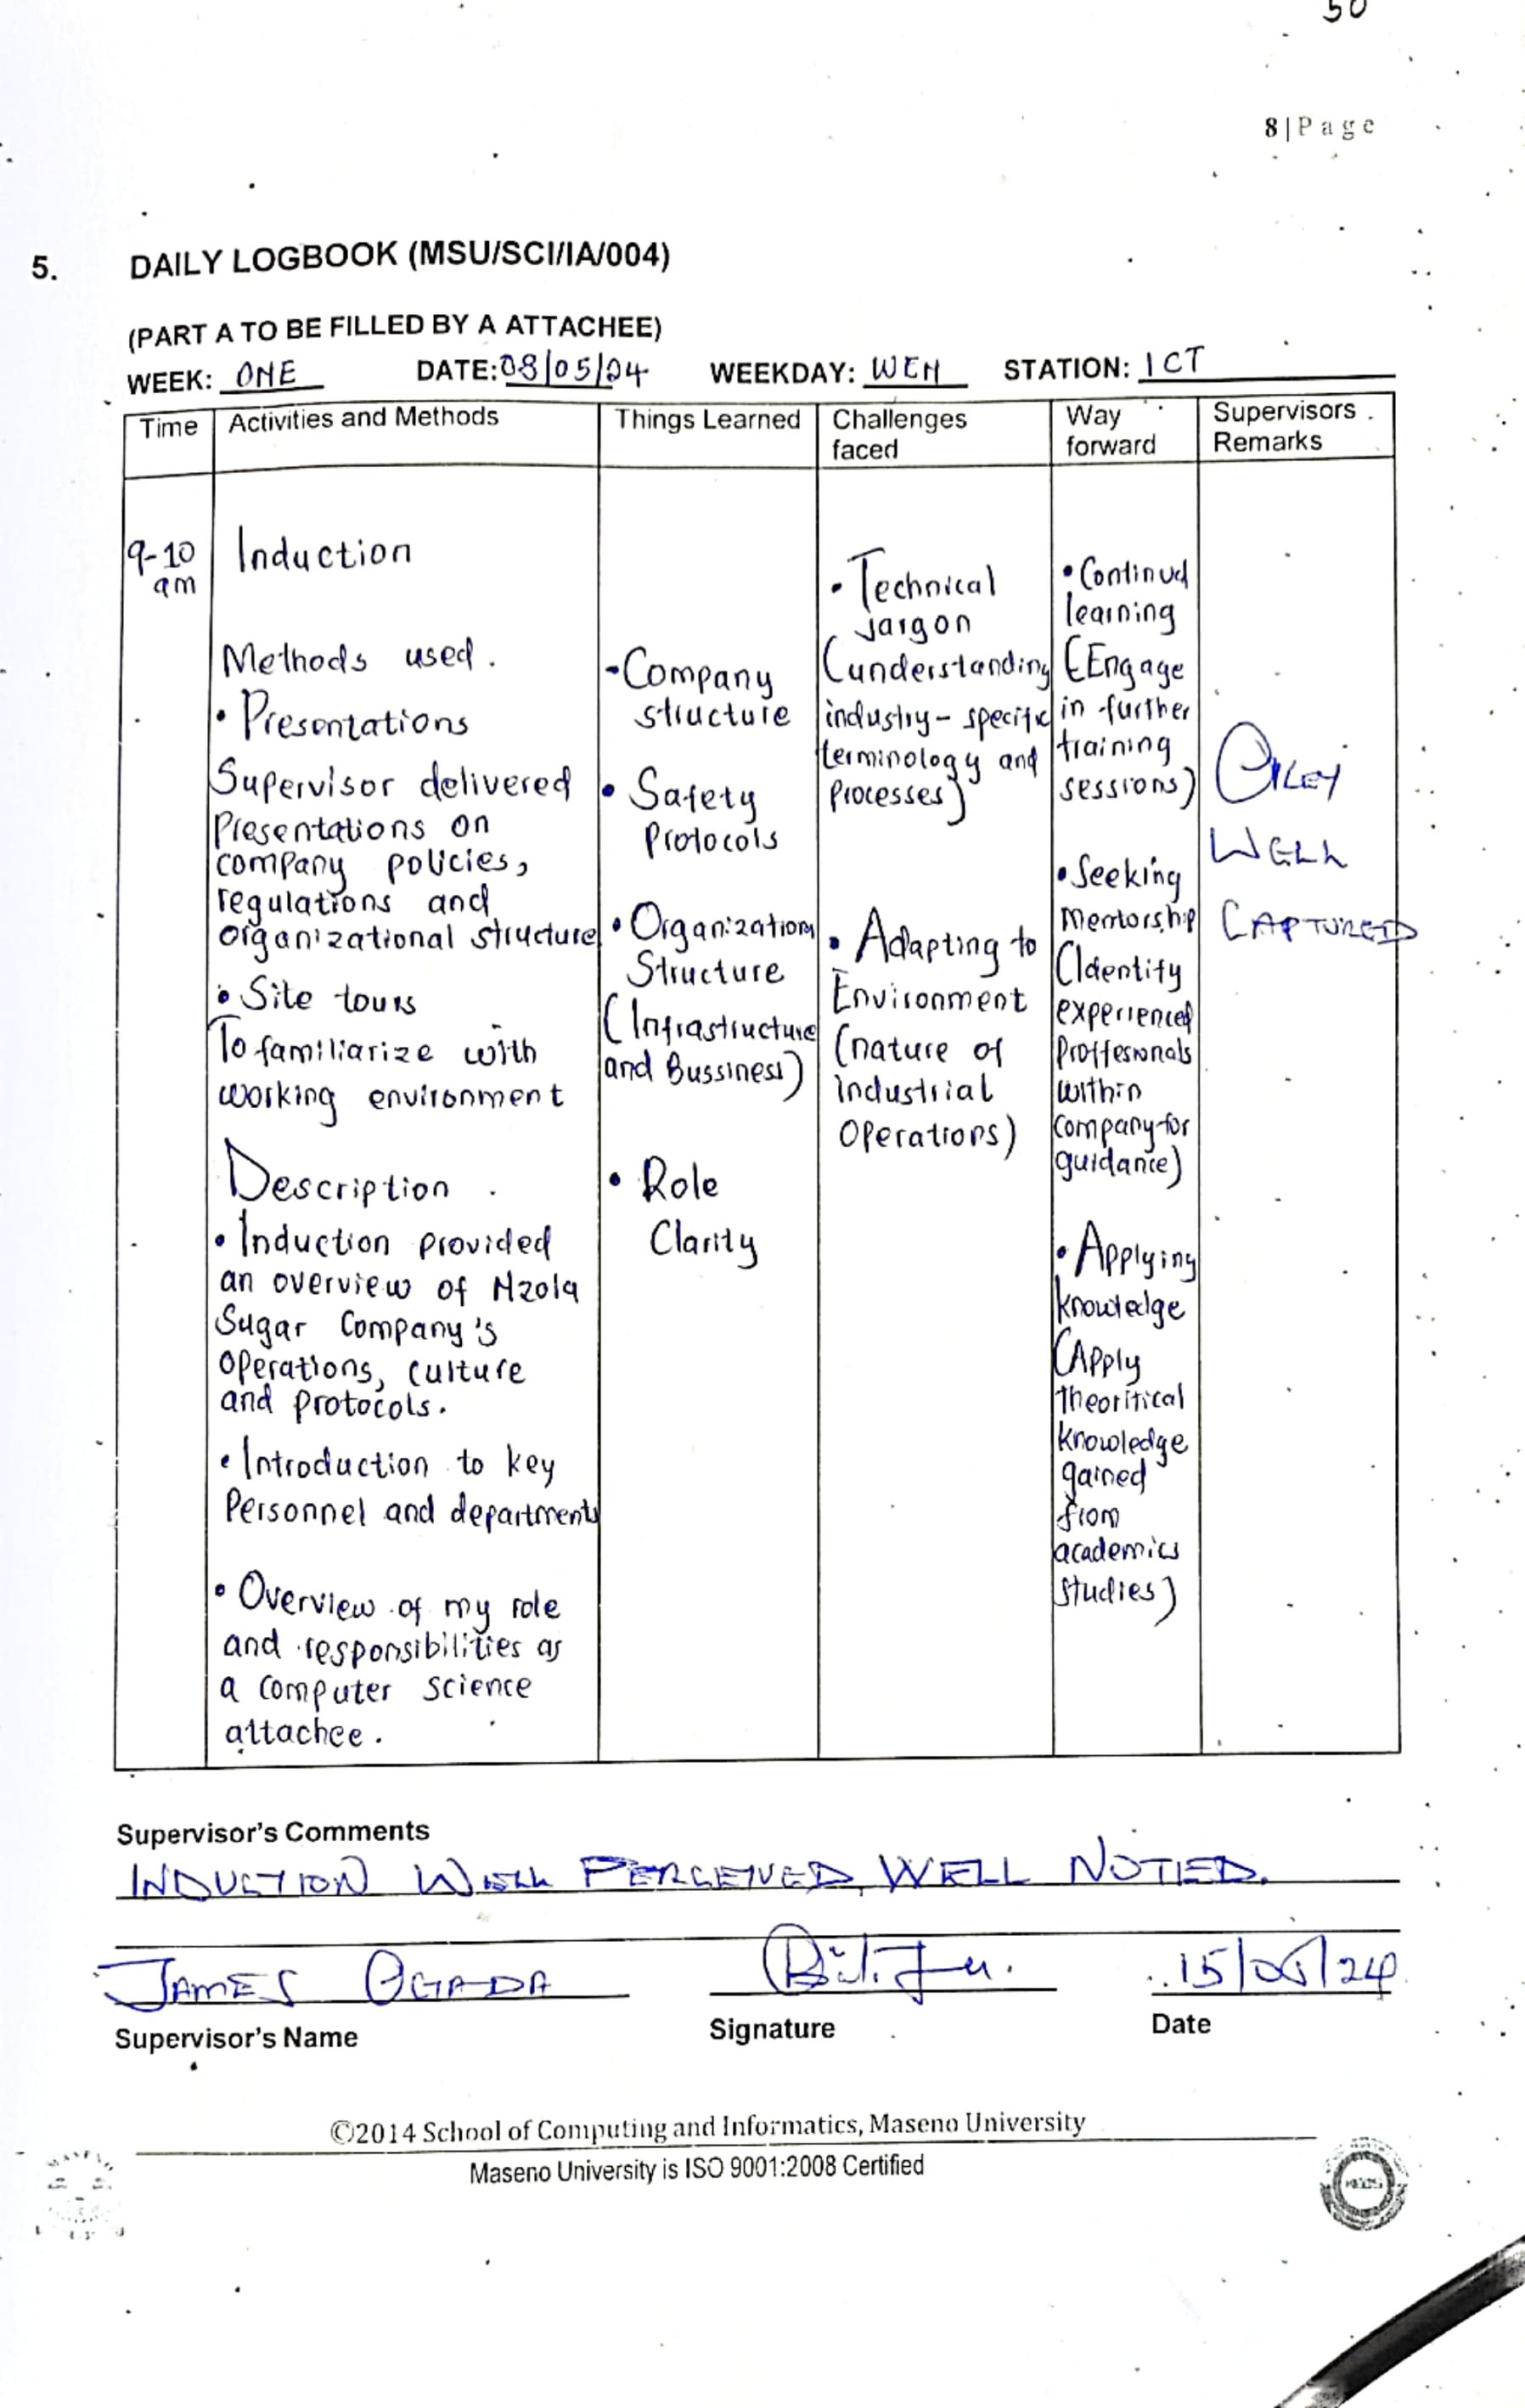 50
8|Page
5. DAILY LOGBOOK (MSU/SCI/IA/004)
(PART A TO BE FILLED BY A ATTACHEE)
WEEK: ONE DATE: 08/05/24 WEEKDAY: WEN STATION: ICT
Time
Activities and Methods
Things Learned
Challenges
faced
Way
forward
Supervisors
Remarks
9-10
am
Induction
Methods used.
• Presentations
Supervisor delivered
Presentations on
company policies,
regulations and
organizational structure
• Site tours
To familiarize with
working environment
Description.
• Induction provided
an overview of Nzoia
Sugar Company's
operations, culture
and protocols.
• Introduction to key
Personnel and departments
• Overview of my role
and responsibilities as
a computer science
attachee.
- Company
structure
• Safety
Protocols
• Organization
Structure
(Infrastructure
and Bussiness)
• Role
Clarity
• Technical
Jargon
(understanding
industry-specific
terminology and
Processes)
• Adapting to
Environment
(nature of
industrial
Operations)
• Continued
learning
(Engage
in further
training
sessions)
• Seeking
Mentorship
(Identify
experienced
Proffesionals
within
company for
guidance)
• Applying
knowledge
(Apply
theoritical
knowledge
gained
from
academics
studies)
WELL
CAPTURED
Supervisor's Comments
INDUCTION WELL PERCEIVED, WELL NOTED.
JAMES OGADA
15/05/24
Supervisor's Name
Signature
Date
©2014 School of Computing and Informatics, Maseno University
Maseno University is ISO 9001:2008 Certified